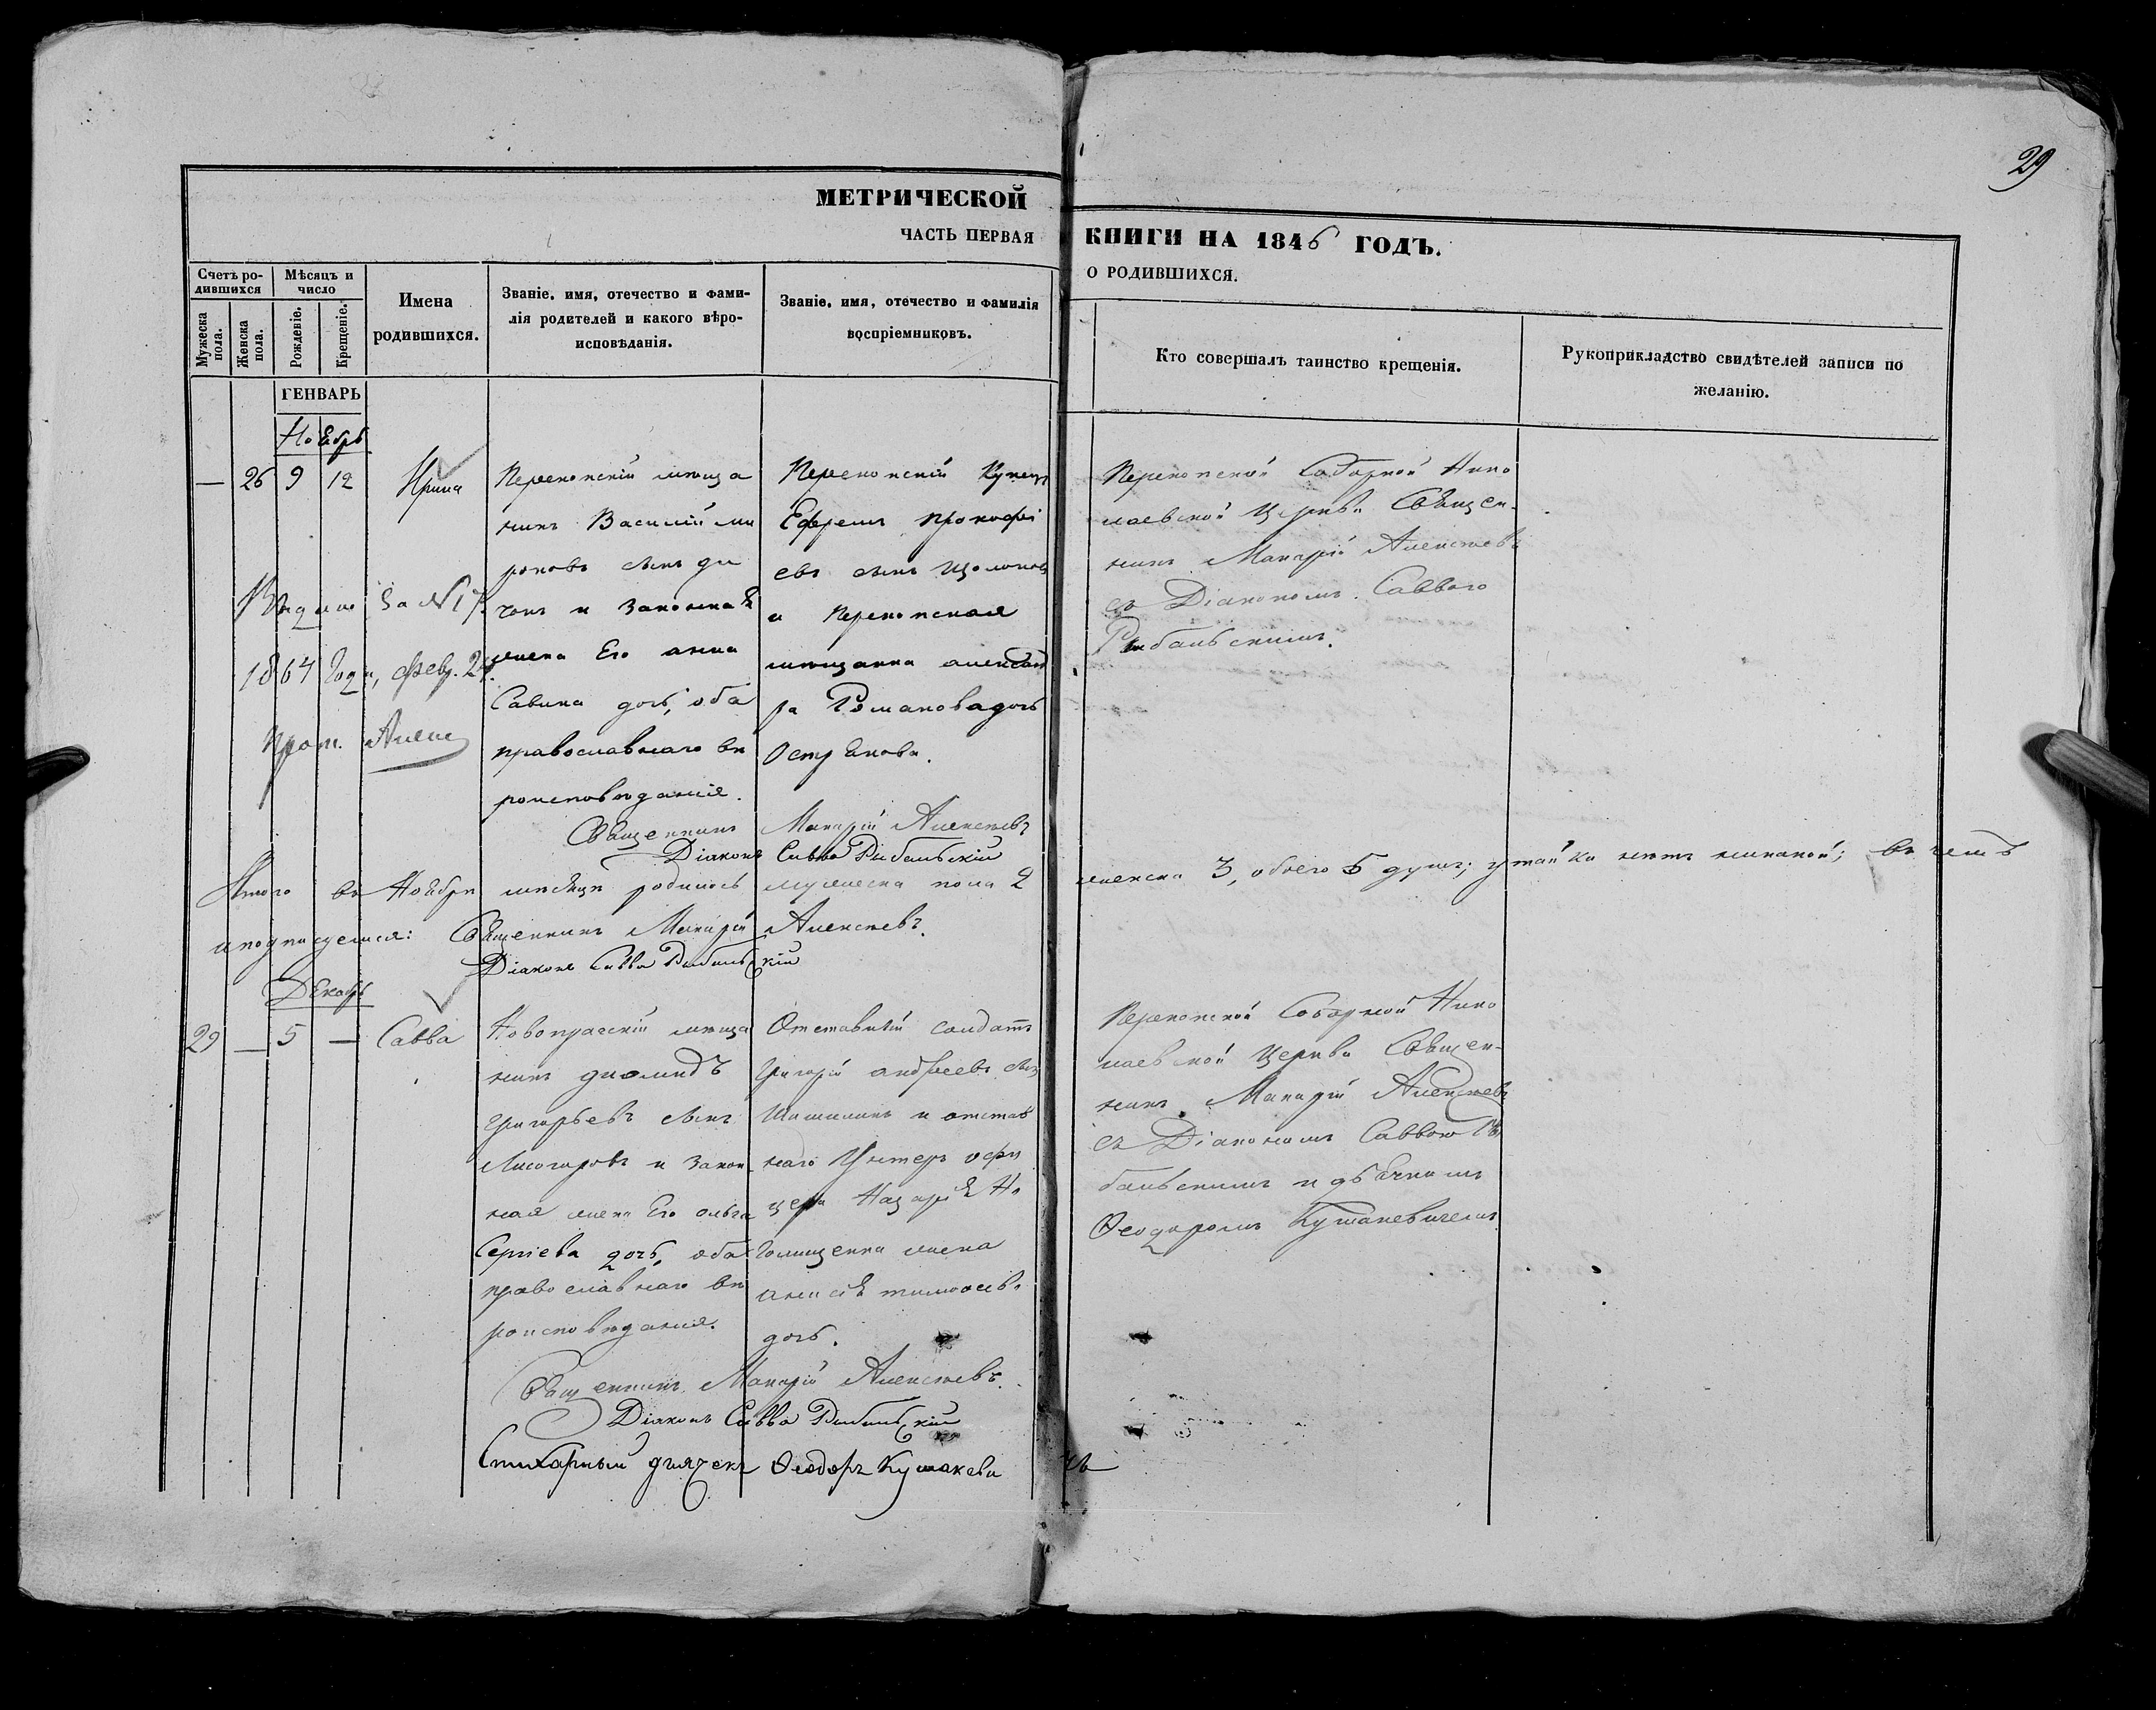 29
МЕТРИЧЕСКОЙ
ЧАСТЬ ПЕРВАЯ
КНИГИ НА 1846 ГОДЪ.
О РОДИВШИХСЯ.
Счетъ ро-
дившихся
Мужеска пола.
Женска пола.
Мѣсяцъ и
число
Рожденіе.
Крещеніе.
Имена
родившихся.
Званіе, имя, отечество и фами-
лія родителей и какого вѣро-
исповѣданія.
Званіе, имя, отечество и фамилія
воспріемниковъ.
Кто совершалъ таинство крещенія.
Рукоприкладство свидѣтелей записи по
желанію.
ГЕНВАРЬ
Ноябрь
— 26 9 12 Ирина
Перекопскій мѣща
нинъ Василій Ми
роновъ сынъ
и законная
жена Его анна
Савина дочь, оба
православнаго вѣ
роисповѣданія.
Перекопскій Купецъ
Ефремъ Прокофі
евъ сынъ
и Перекопская
мѣщанка александ
ра Романова дочь
Острякова.
Перекопской Соборной Нико
лаевской Церкви Священ-
никъ Макарій Алексѣевъ
съ Діакономъ Саввою
Рибальскимъ.
Выдано за № 17.
1864 года, Февр. 24.
Прот. Алекс
Священникъ Макарій Алексѣевъ
Діаконъ Савва Рибальскій
Итого въ Ноябрѣ мѣсяцѣ родилось мужеска пола 2 женска 3, обоего 5 душъ; утайки нѣтъ никакой; въ чемъ
и подписуемся: Священникъ Макарій Алексѣевъ.
Діаконъ Савва Рибальскій
Декабрь
29 — 5 — Савва
мѣща
нинъ диомидъ
Григорьевъ сынъ
Лисогоровъ и закон
ная жена Его ольга
Сергіева дочь, оба
православнаго вѣ
роисповѣданія.
Отставный солдатъ
Григорій андреевъ сынъ
и отстав
наго Унтеръ офи
цера Назарія
жена
анисія
дочь.
Перекопской Соборной Нико
лаевской Церкви Священ-
никъ Макарій Алексѣевъ
съ Діакономъ Саввою Ри
бальскимъ и дьячкомъ
Ѳеодоромъ Кушакевичемъ.
Священникъ Макарій Алексѣевъ.
Діаконъ Савва Рибальскій
Стихарный дьячекъ Ѳеодоръ Кушакевичъ